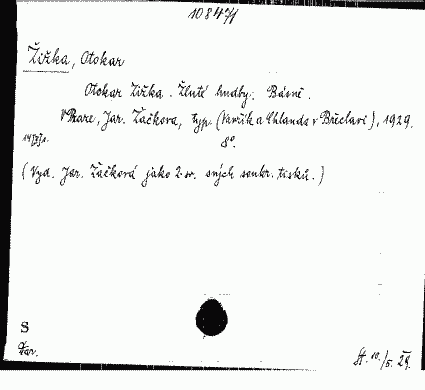 10847/1
Žižka, Otokar
Otokar Žižka. Žluté hudby. Básně.
V Praze, Jar. Žáčkova, typ. (Vavřík a Uhlanda v Břeclavi), 1929.
8°.
(Vyd. Jar. Žáčková jako 2. sv. svých soukr. tisků.)
S
Var.
St. 10./5. 29.